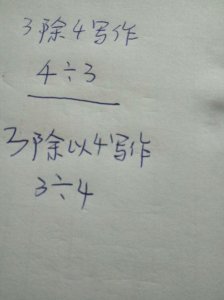 3除4写作
4÷3
3除以4写作
3÷4